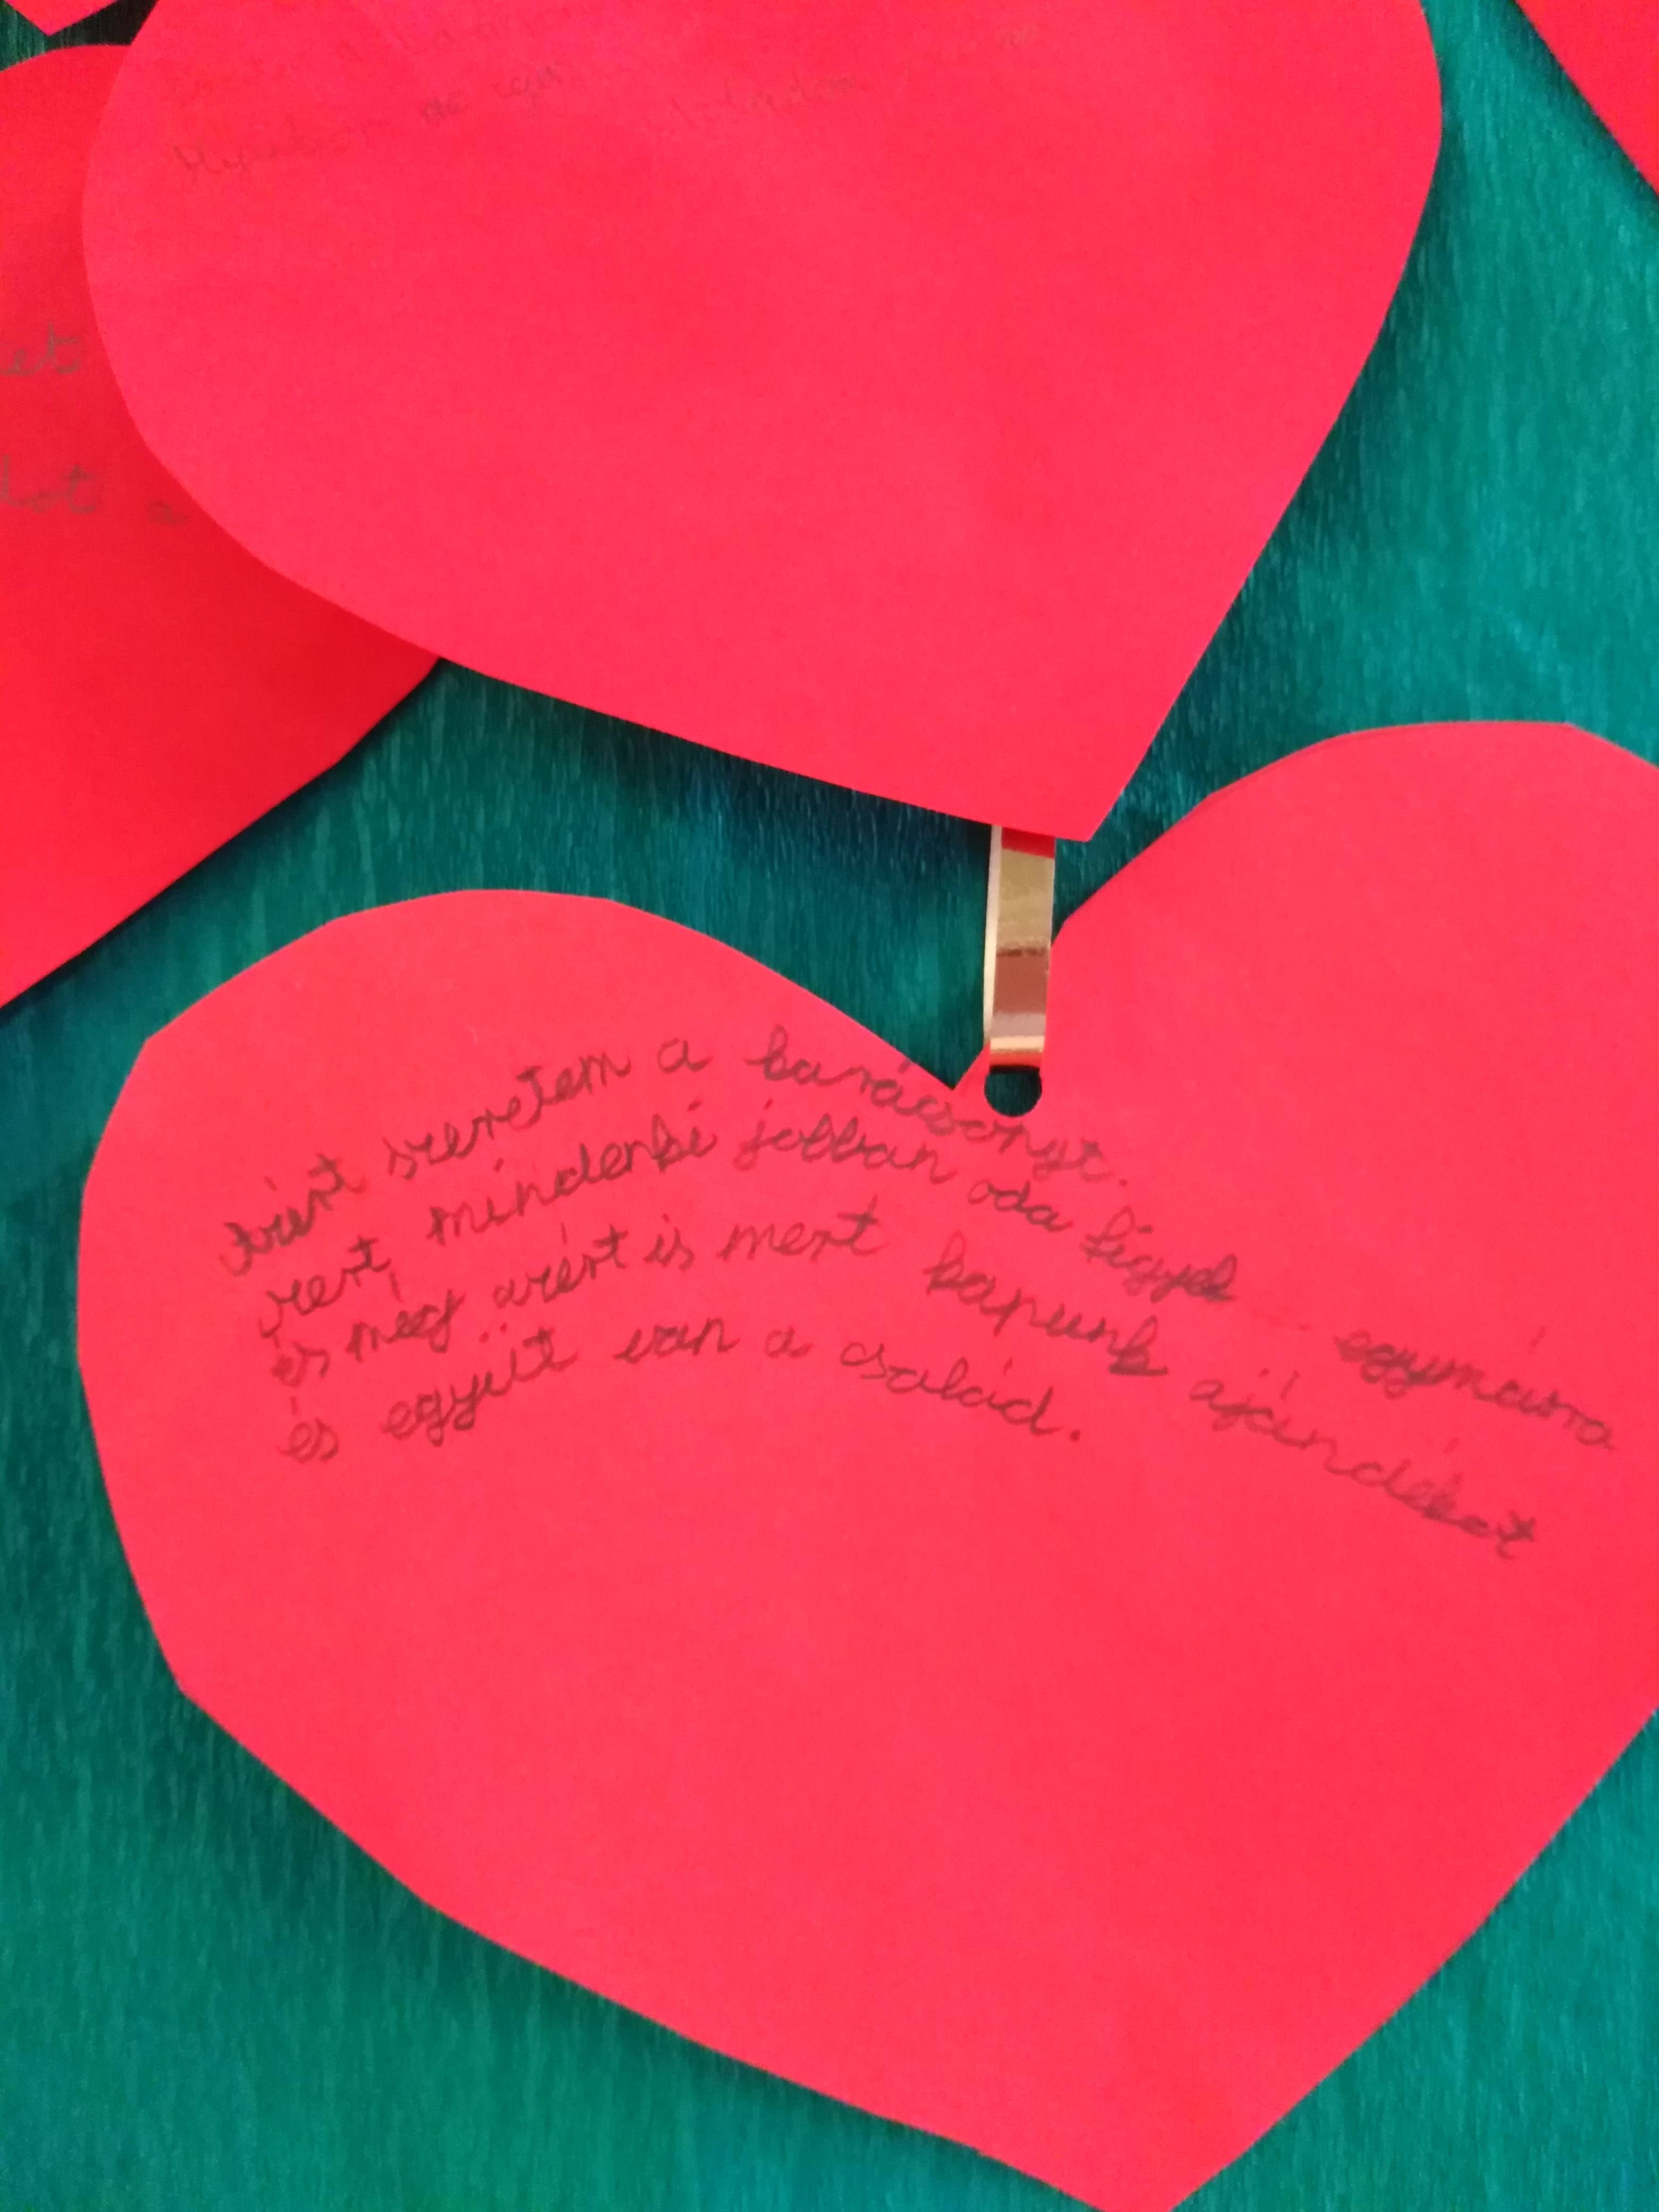 et
lot a
Azért szeretem a karácsonyt.
mert mindenki jobban oda figyel egymásra
és még azért is mert kapunk ajándékot
és együtt van a család.